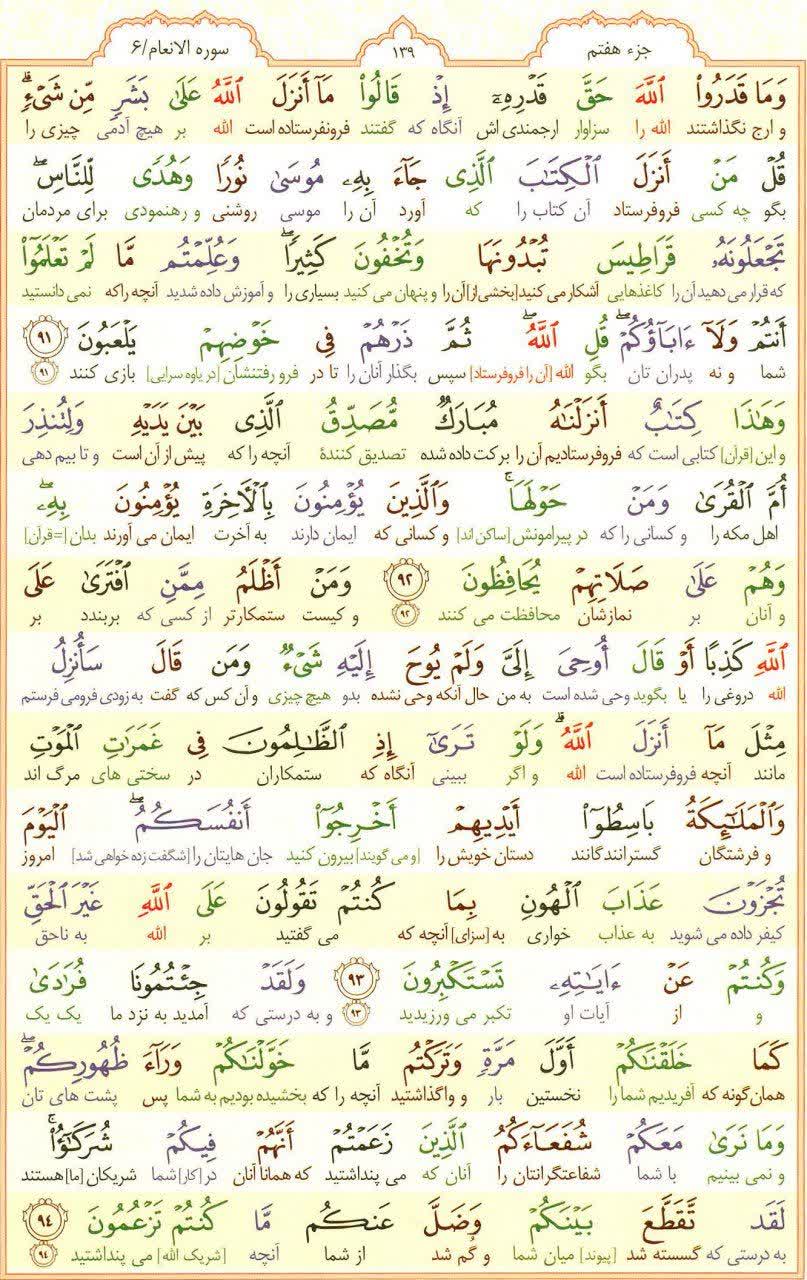 جزء هفتم
١٣٩
سوره الانعام/۶
وَمَا قَدَرُوا۟ ٱللَّهَ حَقَّ قَدْرِهِۦٓ إِذْ قَالُوا۟ مَآ أَنزَلَ ٱللَّهُ عَلَىٰ بَشَرٍ مِّن شَىْءٍۗ
و ارج نگذاشتند الله را سزاوار ارجمندی اش آنگاه که گفتند فرونفرستاده است الله بر هیچ آدمی چیزی را
قُلْ مَنْ أَنزَلَ ٱلْكِتَـٰبَ ٱلَّذِى جَآءَ بِهِۦ مُوسَىٰ نُورًا وَهُدًى لِّلنَّاسِۖ
بگو چه کسی فروفرستاد آن کتاب را که آورد آن را موسی روشنی و رهنمودی برای مردمان
تَجْعَلُونَهُۥ قَرَاطِيسَ تُبْدُونَهَا وَتُخْفُونَ كَثِيرًاۖ وَعُلِّمْتُم مَّا لَمْ تَعْلَمُوٓا۟
که قرار می دهید آن را کاغذهایی آشکار می کنید [بخشی از] آن را و پنهان می کنید بسیاری را و آموزش داده شدید آنچه را که نمی دانستید
أَنتُمْ وَلَآ ءَابَآؤُكُمْۖ قُلِ ٱللَّهُۖ ثُمَّ ذَرْهُمْ فِى خَوْضِهِمْ يَلْعَبُونَ ٩١
شما و نه پدران تان بگو الله [آن را فروفرستاد] سپس بگذار آنان را تا در فرو رفتنشان [در یاوه سرایی] بازی کنند ٩١
وَهَـٰذَا كِتَـٰبٌ أَنزَلْنَـٰهُ مُبَارَكٌ مُّصَدِّقُ ٱلَّذِى بَيْنَ يَدَيْهِ وَلِتُنذِرَ
و این [قرآن] کتابی است که فروفرستادیم آن را برکت داده شده تصدیق کنندهٔ آنچه را که پیش از آن است و تا بیم دهی
أُمَّ ٱلْقُرَىٰ وَمَنْ حَوْلَهَاۚ وَٱلَّذِينَ يُؤْمِنُونَ بِٱلْـَٔاخِرَةِ يُؤْمِنُونَ بِهِۦۖ
اهل مکه را و کسانی را که در پیرامونش [ساکن اند] و کسانی که ایمان دارند به آخرت ایمان می آورند بدان [=قرآن]
وَهُمْ عَلَىٰ صَلَاتِهِمْ يُحَافِظُونَ ٩٢ وَمَنْ أَظْلَمُ مِمَّنِ ٱفْتَرَىٰ عَلَى
و آنان بر نمازشان محافظت می کنند ٩٢ و کیست ستمکارتر از کسی که بربندد بر
ٱللَّهِ كَذِبًا أَوْ قَالَ أُوحِىَ إِلَىَّ وَلَمْ يُوحَ إِلَيْهِ شَىْءٌ وَمَن قَالَ سَأُنزِلُ
الله دروغی را یا بگوید وحی شده است به من حال آنکه وحی نشده بدو هیچ چیزی و آن کس که گفت به زودی فرومی فرستم
مِثْلَ مَآ أَنزَلَ ٱللَّهُۗ وَلَوْ تَرَىٰٓ إِذِ ٱلظَّـٰلِمُونَ فِى غَمَرَٰتِ ٱلْمَوْتِ
مانند آنچه فروفرستاده است الله و اگر ببینی آنگاه که ستمکاران در سختی های مرگ اند
وَٱلْمَلَـٰٓئِكَةُ بَاسِطُوٓا۟ أَيْدِيهِمْ أَخْرِجُوٓا۟ أَنفُسَكُمُۖ ٱلْيَوْمَ
و فرشتگان گسترانندگانند دستان خویش را [و می گویند] بیرون کنید جان هایتان را [شگفت زده خواهی شد] امروز
تُجْزَوْنَ عَذَابَ ٱلْهُونِ بِمَا كُنتُمْ تَقُولُونَ عَلَى ٱللَّهِ غَيْرَ ٱلْحَقِّ
کیفر داده می شوید به عذاب خواری به [سزای] آنچه که می گفتید بر الله به ناحق
وَكُنتُمْ عَنْ ءَايَـٰتِهِۦ تَسْتَكْبِرُونَ ٩٣ وَلَقَدْ جِئْتُمُونَا فُرَٰدَىٰ
و از آیات او تکبر می ورزیدید ٩٣ و به درستی که آمدید به نزد ما یک یک
كَمَا خَلَقْنَـٰكُمْ أَوَّلَ مَرَّةٍ وَتَرَكْتُم مَّا خَوَّلْنَـٰكُمْ وَرَآءَ ظُهُورِكُمْۖ
همان گونه که آفریدیم شما را نخستین بار و واگذاشتید آنچه را که بخشیده بودیم به شما پس پشت های تان
وَمَا نَرَىٰ مَعَكُمْ شُفَعَآءَكُمُ ٱلَّذِينَ زَعَمْتُمْ أَنَّهُمْ فِيكُمْ شُرَكَـٰٓؤُا۟ۚ
و نمی بینیم با شما شفاعتگرانتان را آنان که می پنداشتید که همانا آنان در [کار] شما شریکان [ما] هستند
لَقَد تَّقَطَّعَ بَيْنَكُمْ وَضَلَّ عَنكُم مَّا كُنتُمْ تَزْعُمُونَ ٩٤
به درستی که گسسته شد [پیوند] میان شما و گم شد از شما آنچه [شریک الله] می پنداشتید ٩٤